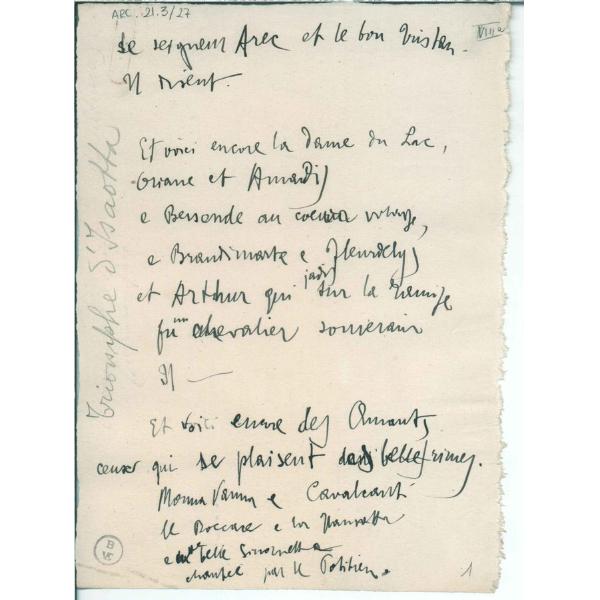 ARC. 21.3/27
VIII a
Le seigneur Arec et le bon Tristan.
Il rient.
Triomphe d'Isaotta
Et voici encore la Dame du Lac,
Oriane et Amadis
e Bersende au coeur volage,
e Brandimarte e Fleurdelys
jadis
et Arthur qui sur la Tamise
fu un chevalier souverain
Il —
Et voici encore des Amants
ceux qui se plaisent belles rimes.
Monna Vanna e Cavalcanti
le Boccace e la Fiammetta
e belle Simonetta
chantée par le Politien.
1